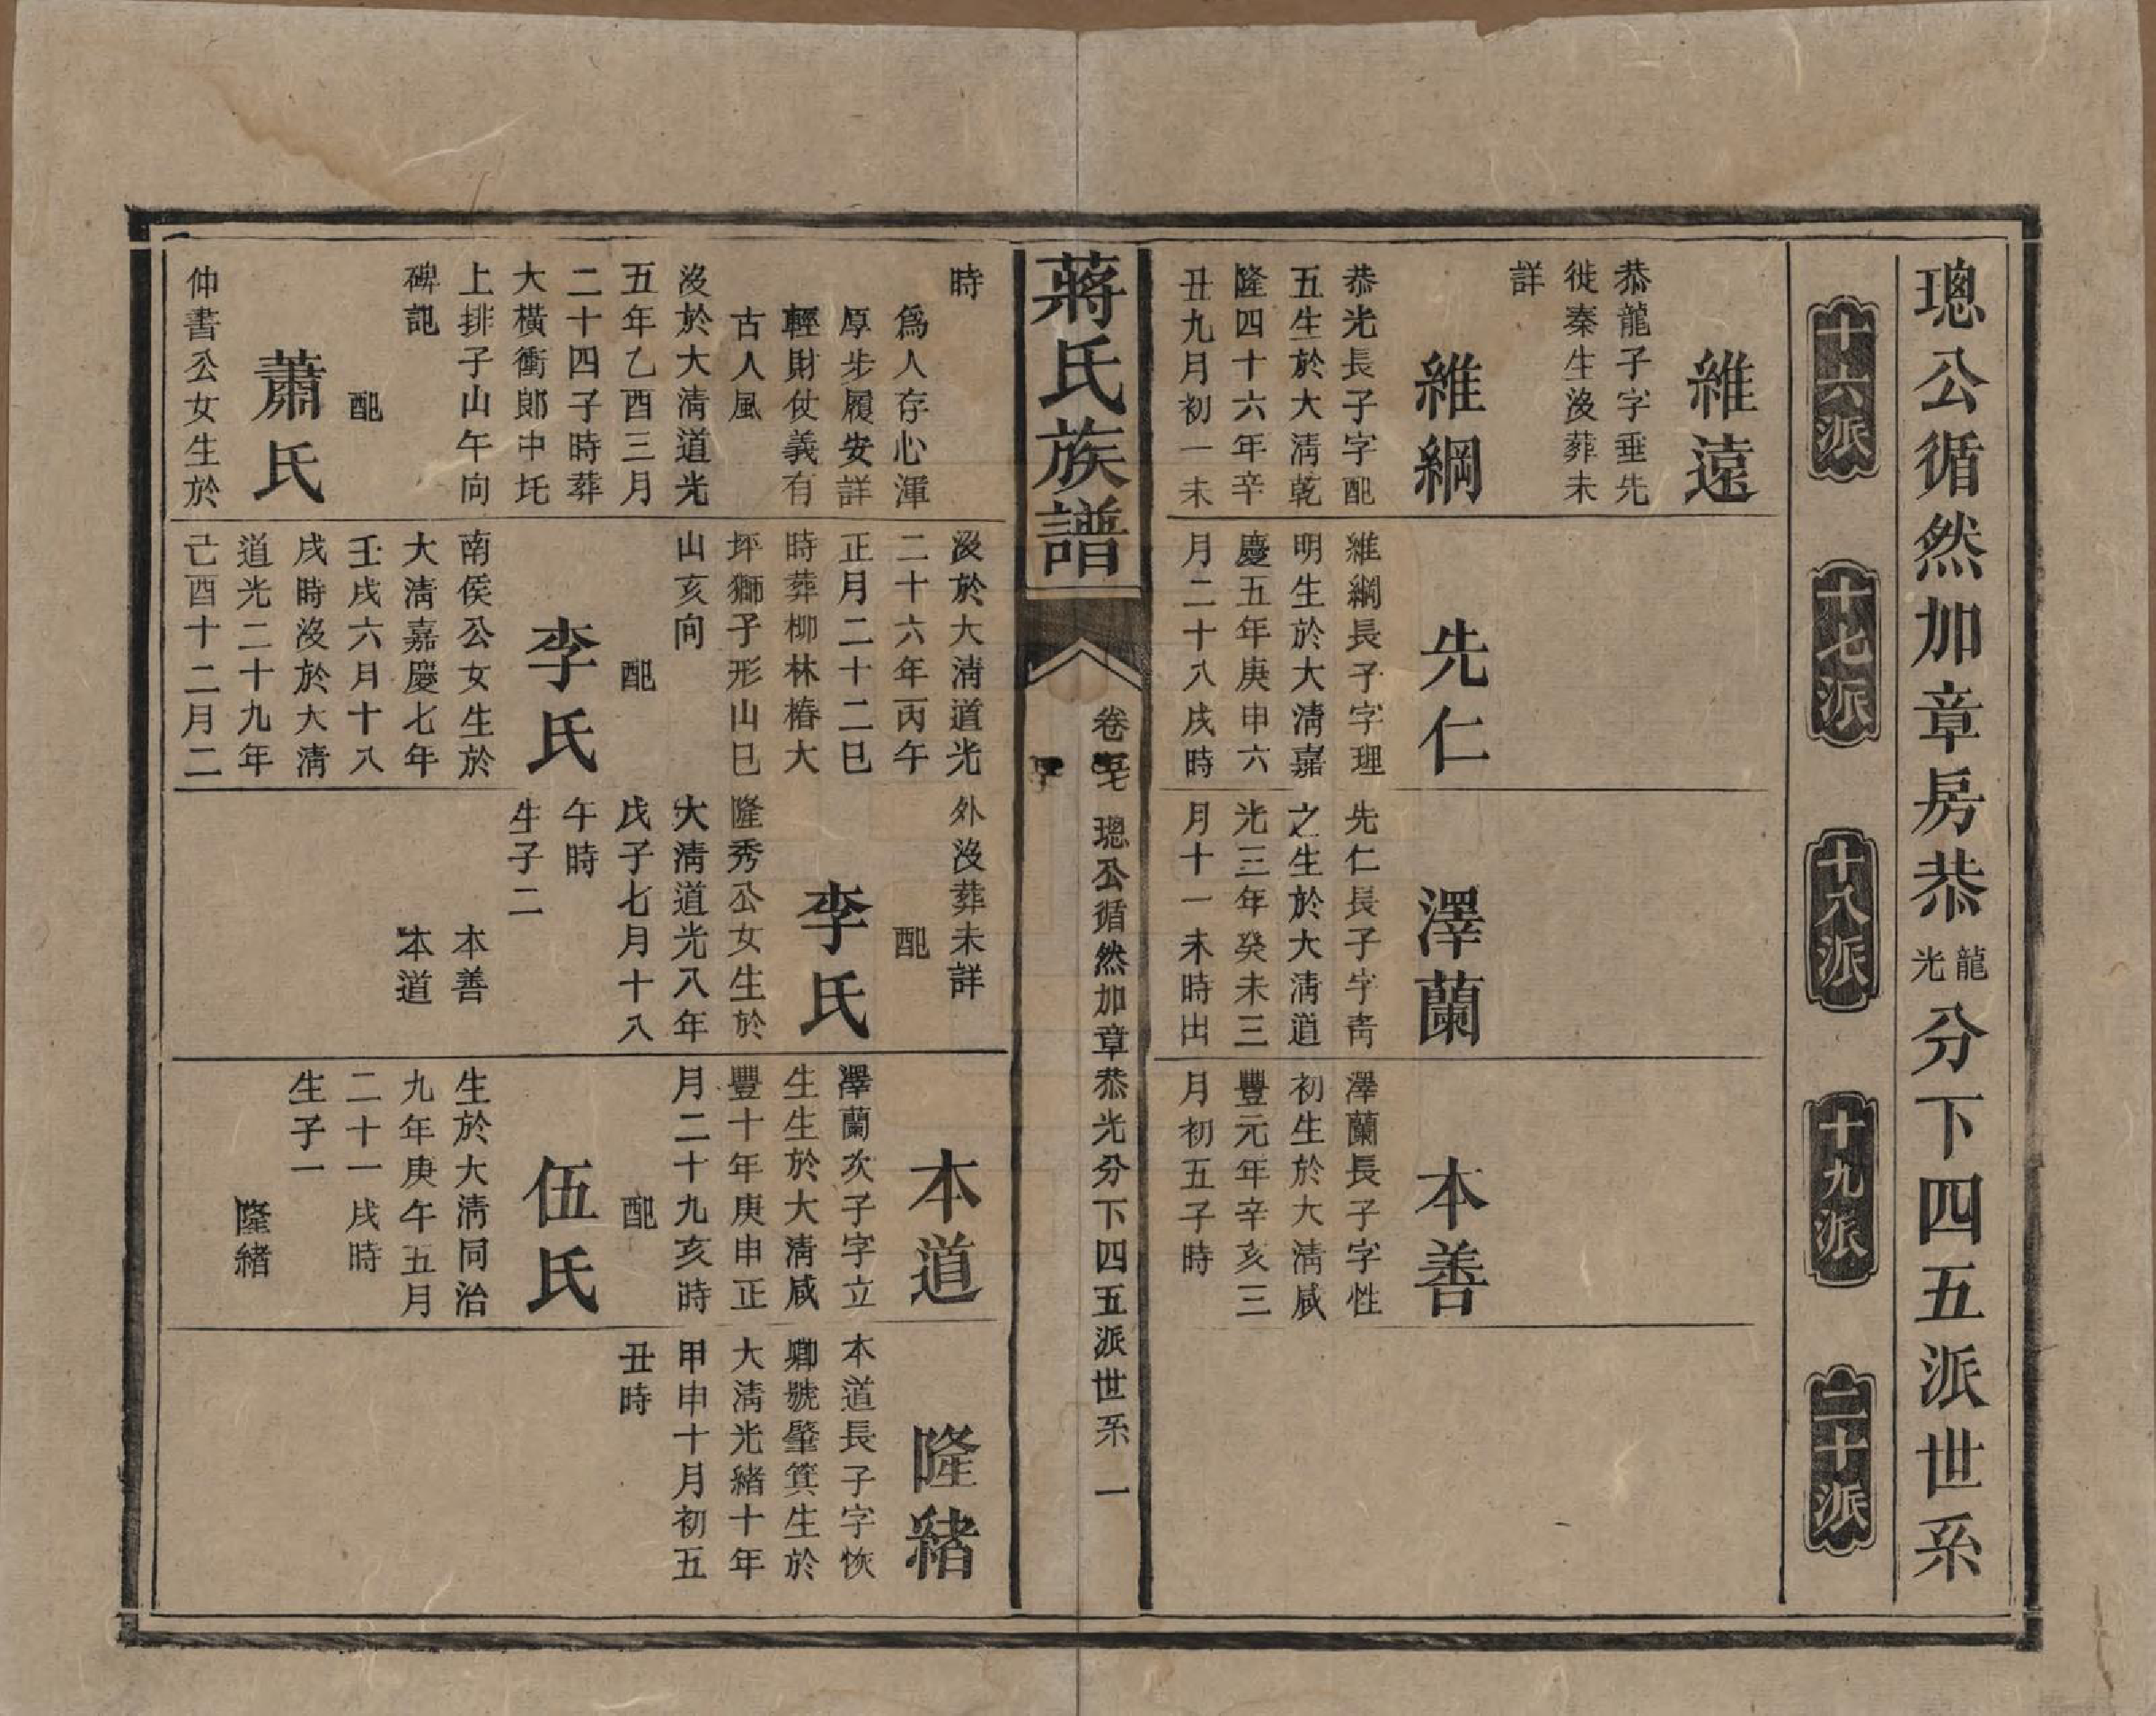 璁公循然加章房恭龍光分下四五派世系
十六派
十七派
十八派
十九派
二十派
維遠
恭龍子字垂先
徙秦生沒葬未
詳
維綱
恭光長子字配
五生於大清乾
隆四十六年辛
丑九月初一未
先仁
維綱長子字理
明生於大清嘉
慶五年庚申六
月二十八戌時
澤蘭
先仁長子字靑
之生於大清道
光三年癸未三
月十一未時出
本善
澤蘭長子字性
初生於大清咸
豐元年辛亥三
月初五子時
蔣氏族譜
卷 璁公循然加章恭光分下四五派世系 一
時
爲人存心渾
厚步履安詳
輕財仗義有
古人風
沒於大清道光
五年乙酉三月
二十四子時葬
大橫衝郞中圫
上排子山午向
碑記
配
蕭氏
仲書公女生於
沒於大清道光
二十六年丙午
正月二十二巳
時葬柳林樁大
坪獅子形山巳
山亥向
配
李氏
南侯公女生於
大清嘉慶七年
壬戌六月十八
戌時沒於大清
道光二十九年
己酉十二月二
外沒葬未詳
配
李氏
隆秀公女生於
大清道光八年
戊子七月十八
午時
生子二
本善
本道
本道
澤蘭次子字立
生生於大清咸
豐十年庚申正
月二十九亥時
配
伍氏
生於大清同治
九年庚午五月
二十一戌時
生子一
隆緒
隆緒
本道長子字恢
卿號肇箕生於
大清光緒十年
甲申十月初五
丑時